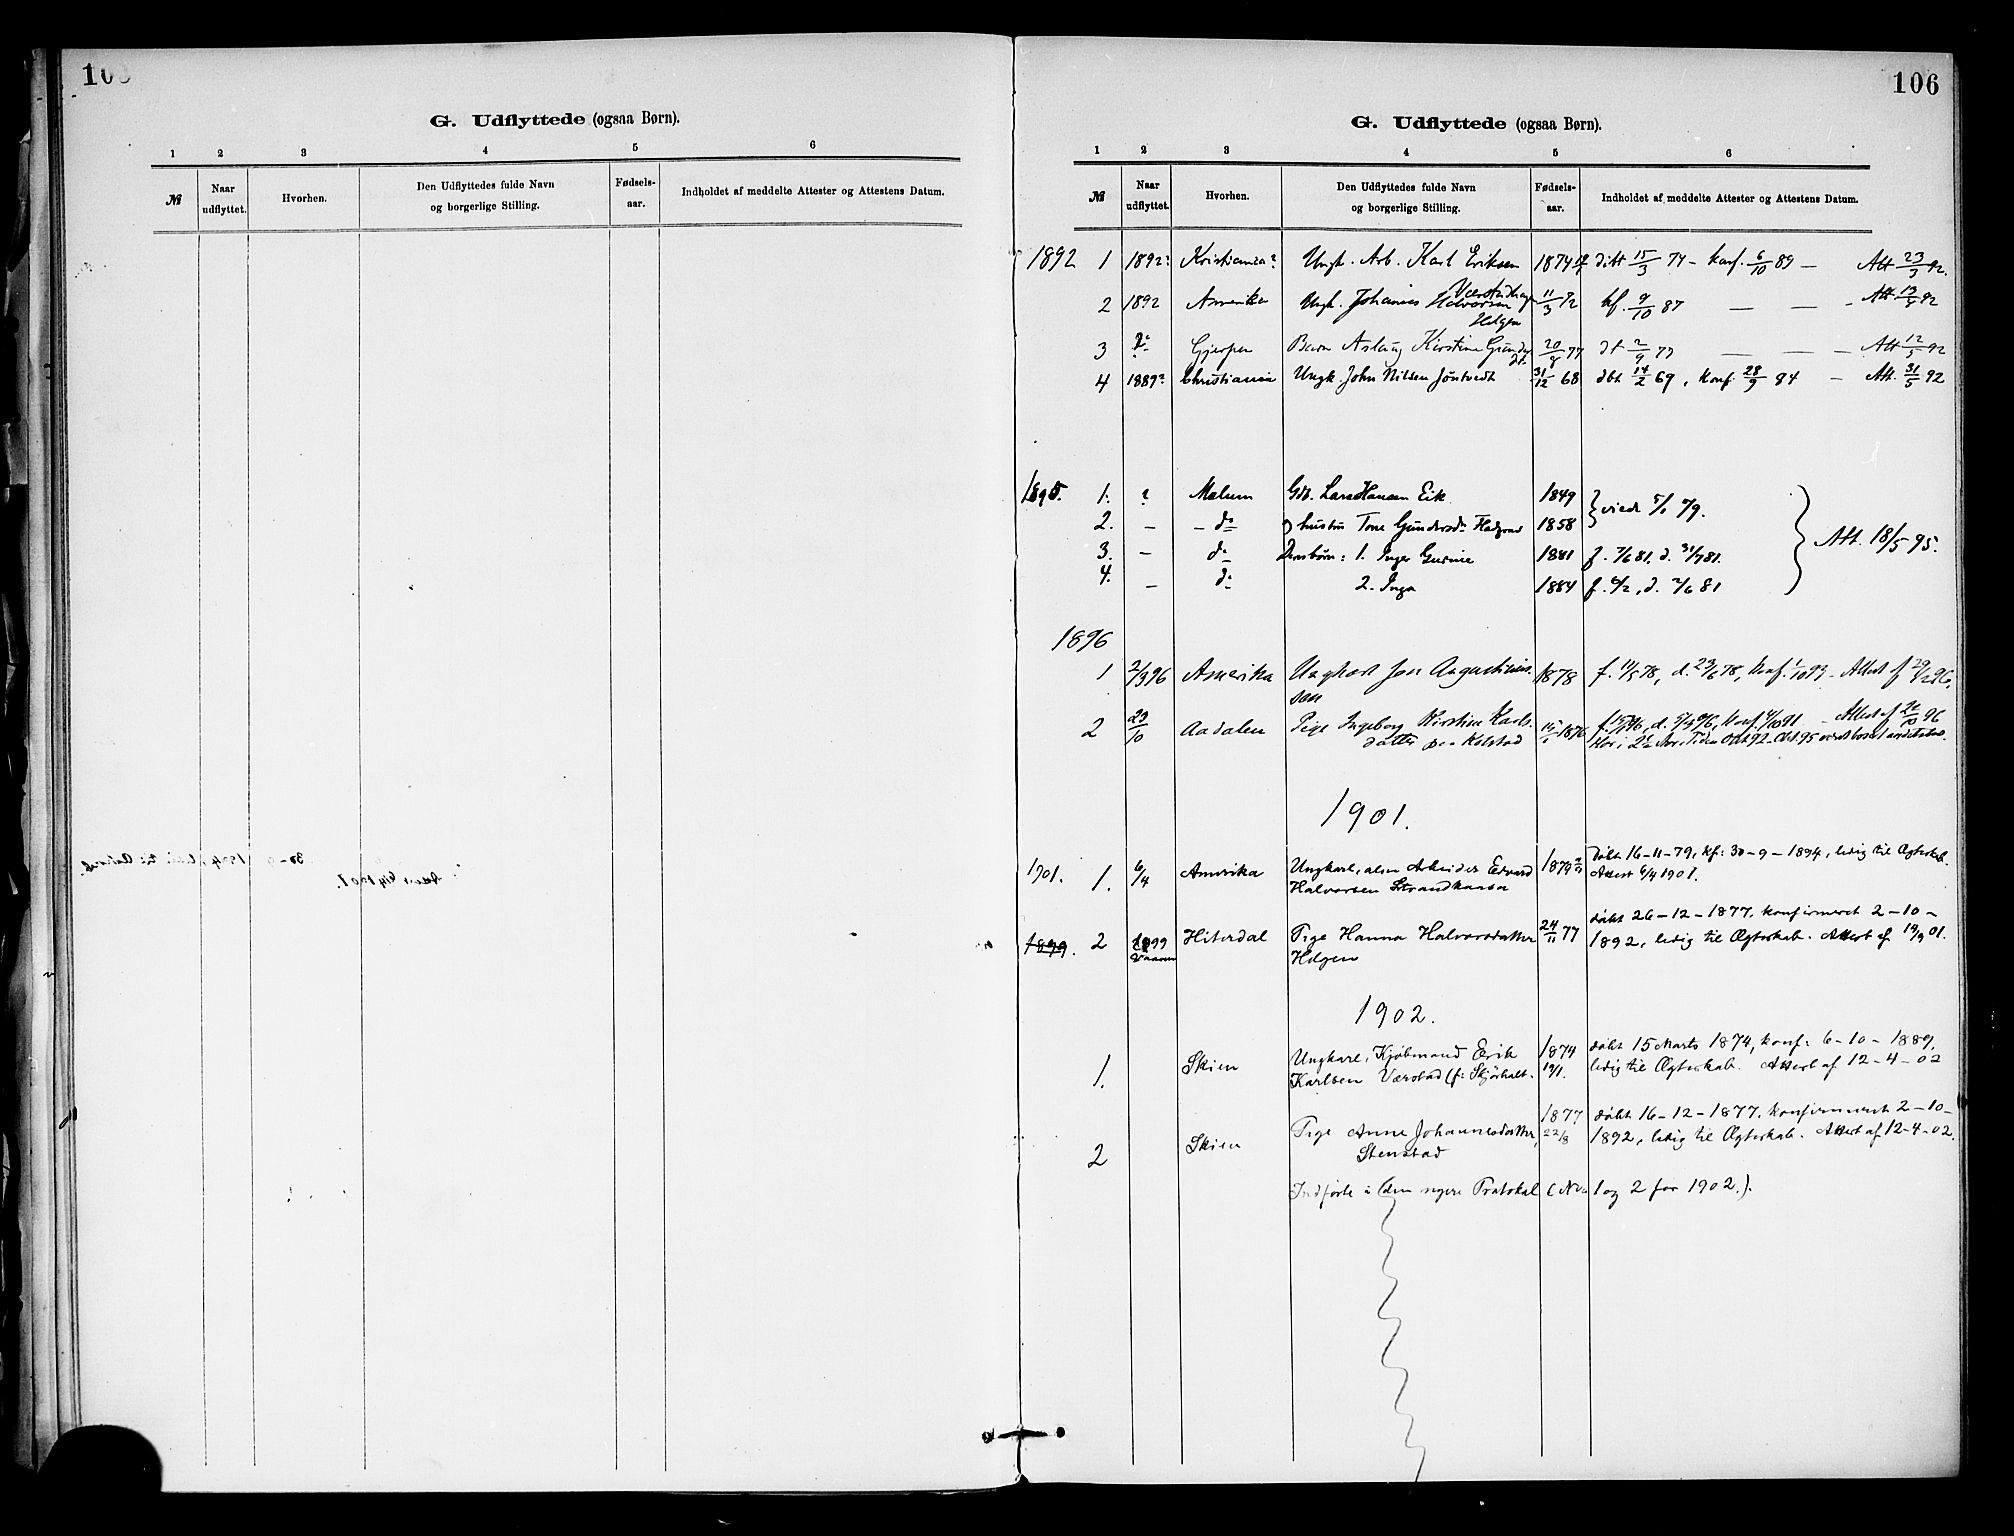 106
G. Udflyttede (ogsaa Børn).
1 2 3 4 5 6
№ Naar udflyttet. Hvorhen. Den Udflyttedes fulde Navn og borgerlige Stilling. Fødsels-aar. Indholdet af meddelte Attester og Attestens Datum.
G. Udflyttede (ogsaa Børn).
1 2 3 4 5 6
№ Naar udflyttet. Hvorhen. Den Udflyttedes fulde Navn og borgerlige Stilling. Fødsels-aar. Indholdet af meddelte Attester og Attestens Datum.
1892 1 1892? Kristiania? Ungk. Arb. Karl Eriksen 1874 døbt 15/3 74 - konf. 6/10 89 - Att 23/3 92.
2 1892 Amerika Ungk. Johannes Halvorsen 11/3 72 kf. 9/10 87 — — - Att 13/5 92
Helgen
3 do Gjerpen Barn Aslaug Kirstine Gundersdt. 20/8 77 dt 2/9 77 — — - Att 12/5 92
4 1889? Christiania Ungk. John Nilsen Jøntvedt 31/12 68 dbt 14/2 69, konf. 28/9 84 - Att. 31/5 92
1895. 1. ? Melum Gdb. Lars Hansen Eik 1849 viede
2. - - do hustru Tone Gundersdr. 1858
Att. 18/5 95.
3. - do Dersbørn: 1. Inger Gurine 1881 f. 7/6 81, d. 31/7 81.
4. - do 2. Inga 1884
1896
1 2/3 96 Amerika Ungkarl Jon Augustinius- 1878 f. 11/5 78, d. 23/6 78, Konf. 1/10 93 - Attest f 29/2 96.
sen
2 23/10 Aadalen Pige Ingeborg Kirstine Karls- 1876 Attest af 96
datter paa Kolstad
1901.
1901. 1. 6/4 Amerika Ungkarl, alm Arbeider Edvard 1879 døbt 16-11-79, kf: 30-9-1894, ledig til Ægteskab.
Halvorsen Strandkaasa Attest 6/4 1901.
1899. 2 1899 Vaaren Hiterdal Pige Hanna Halvorsdatter 24/11 77 døbt 26-12-1877, konfirmeret 2-10-
Helgen 1892, ledig til Ægteskab. Attest af 14/9 01.
1902.
1. Skien Ungkarl, Kjøbmand Erik 1874 døbt 15 Marts 1874, konf: 6-10-1889,
Karlsen Værstad (f: Skjørholt. 19/1. ledig til Ægteskab. Attest af 12-4-02
2 Skien Pige Anne Johannesdatter, 1877 døbt 16-12-1877, konfirmeret 2-10-
Stenstad 22/8 1892, ledig til Ægteskab. Attest af 12-4-02.
Indførte i den nyere Protokol (No 1 og 2 for 1902.).